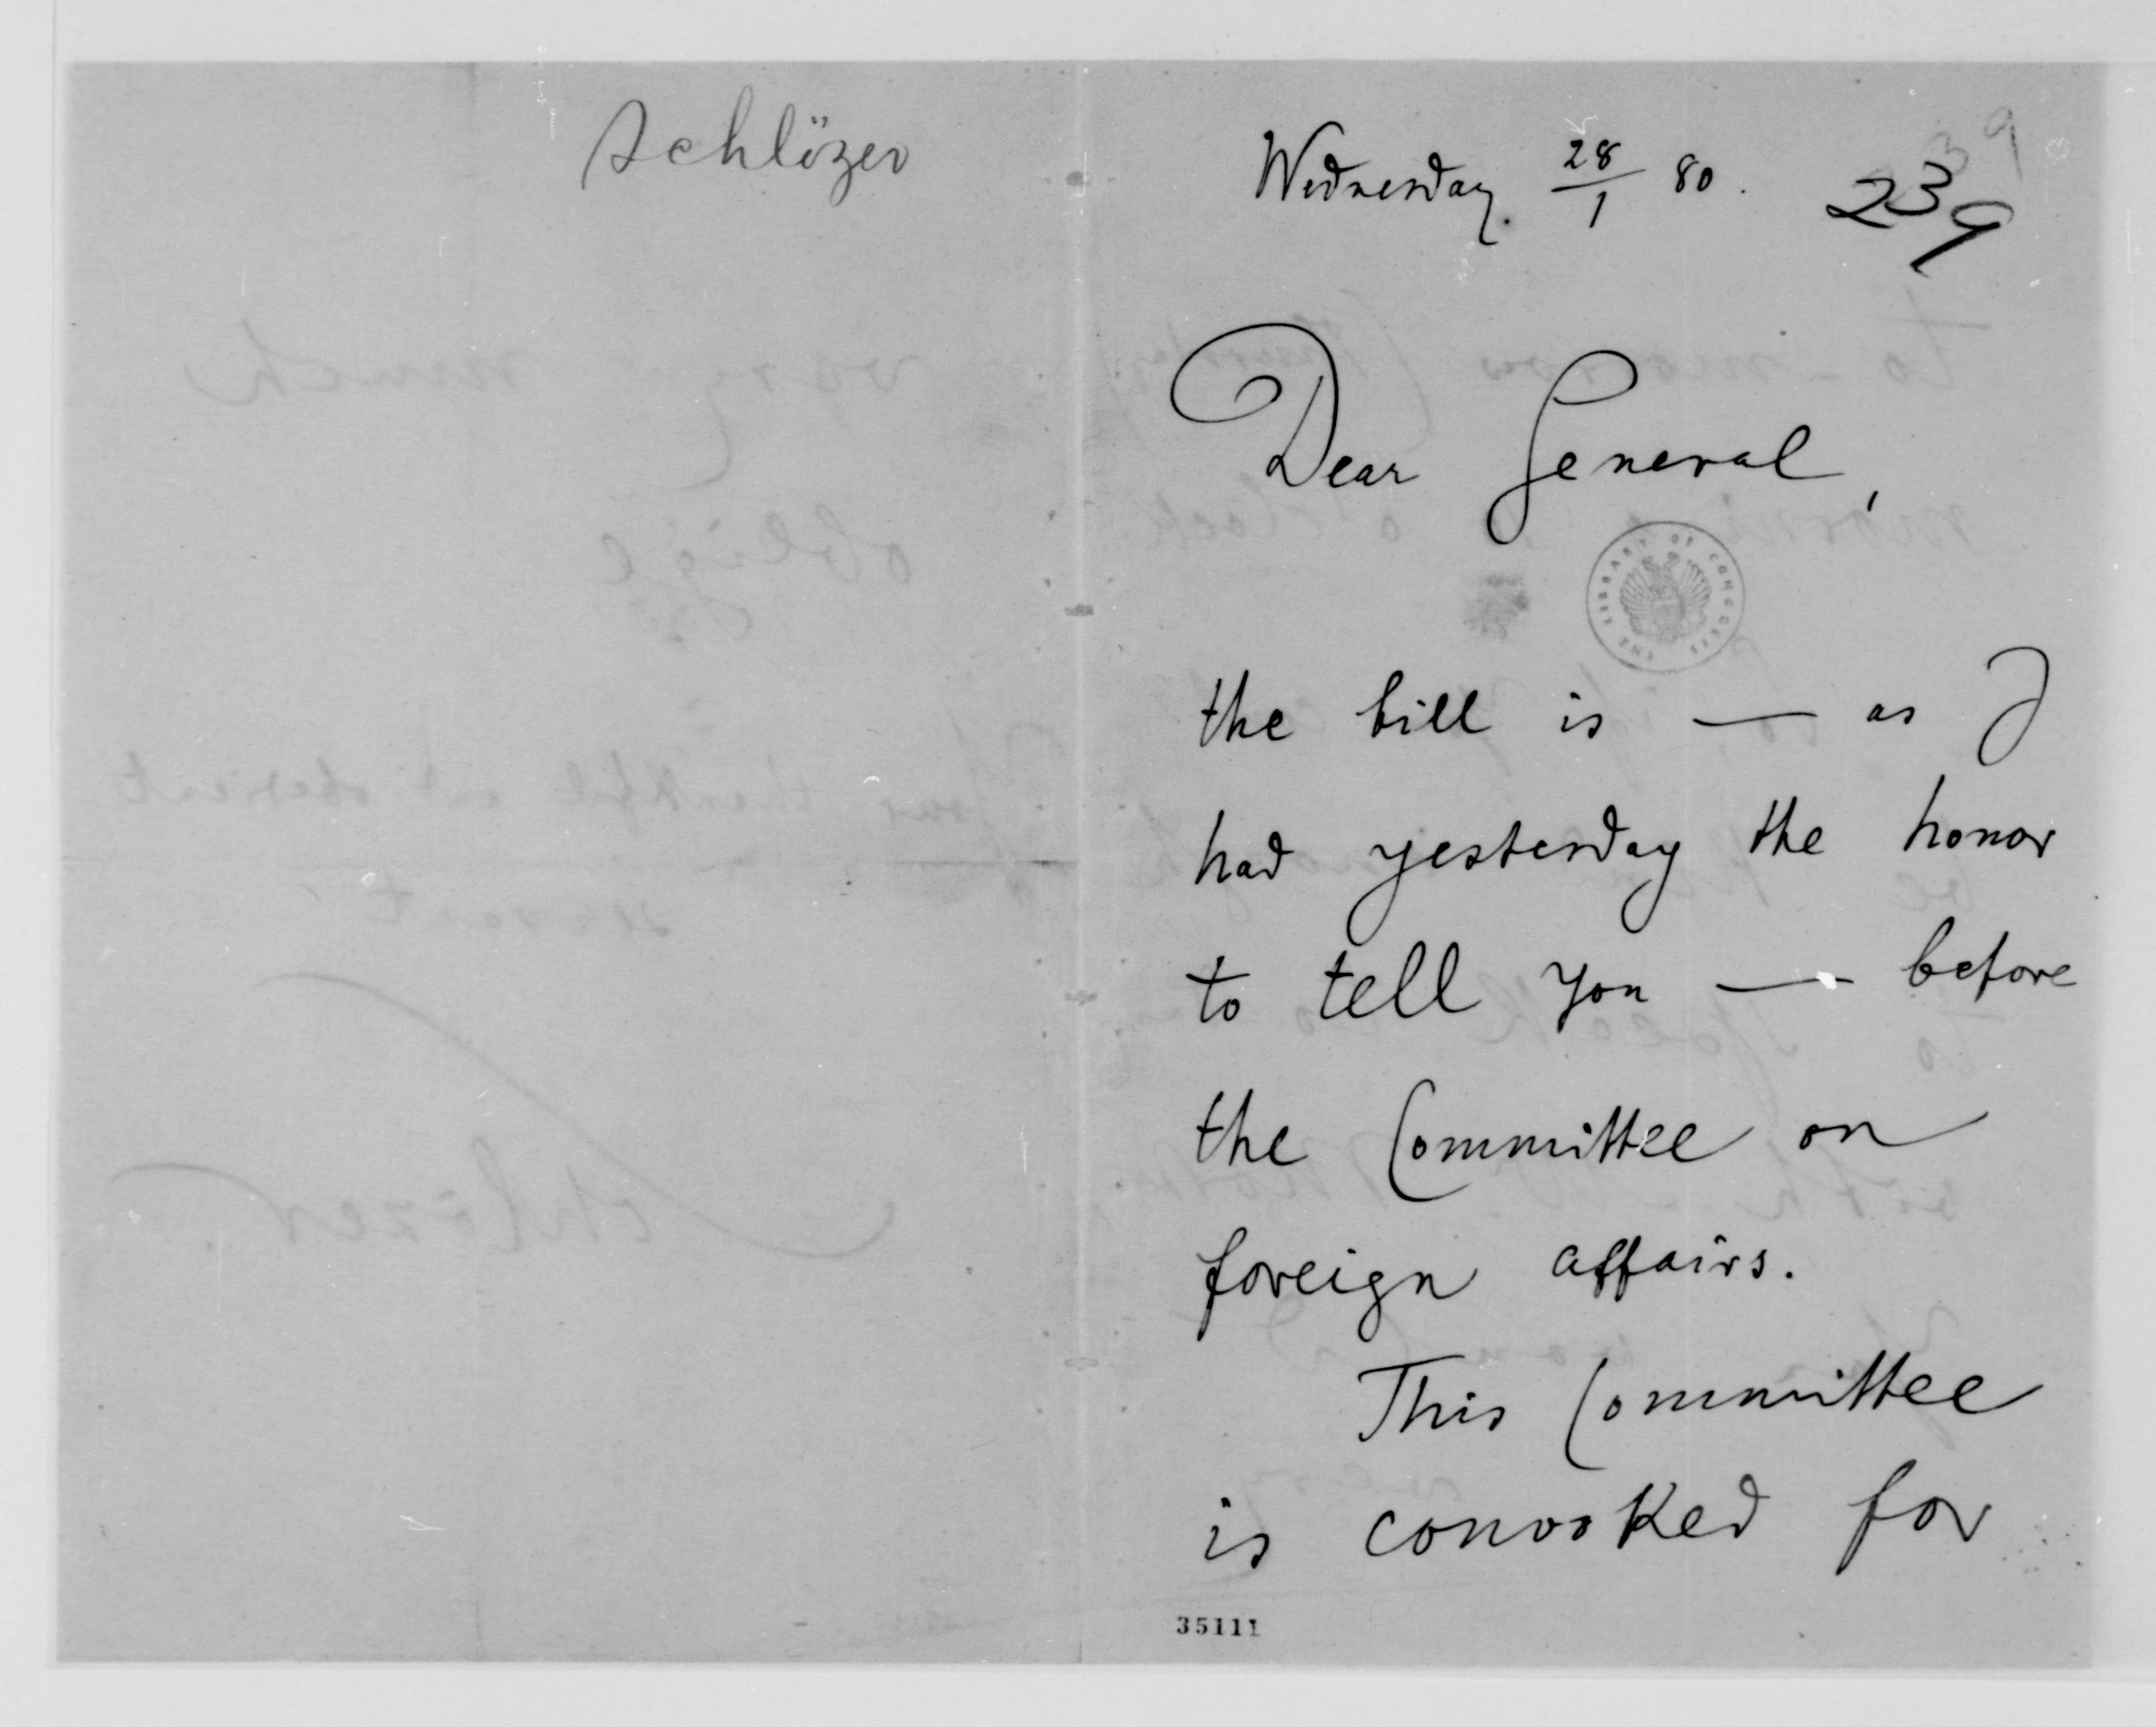 Schlözer
Wednesday. 28/1 80.
239
Dear General,
THE LIBRARY OF CONGRESS
the bill is — as I
had yesterday the honor
to tell you — before
the Committee on
foreign affairs.
This Committee
is convoked for
35111